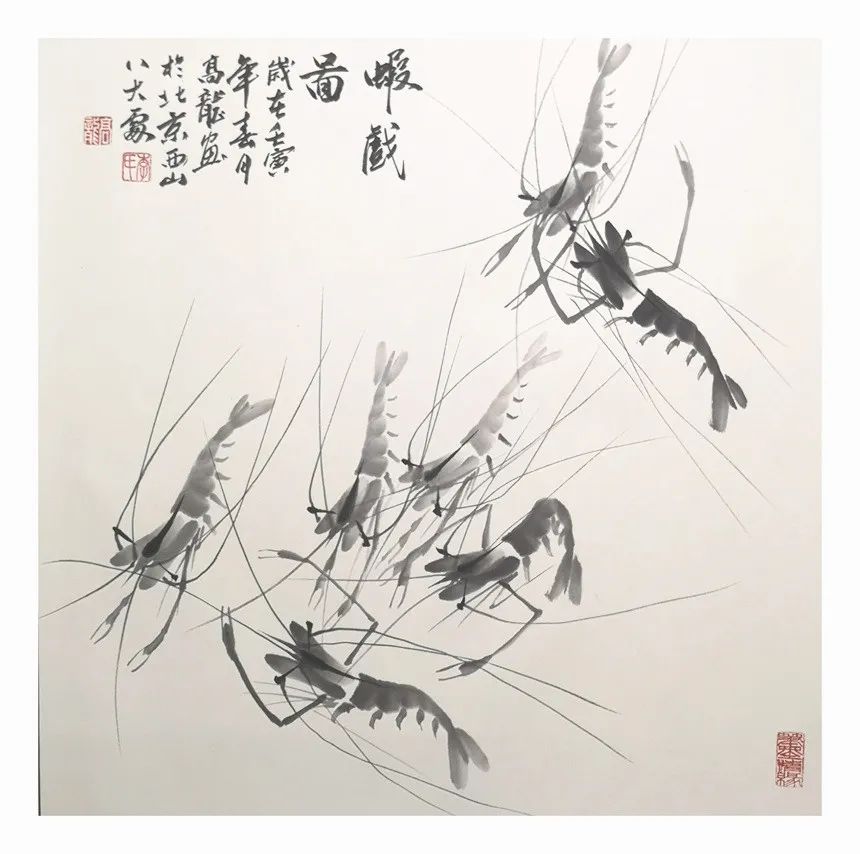 蝦戲
圖
歲在壬寅
年春月
高龍画
於北京西山
八大處